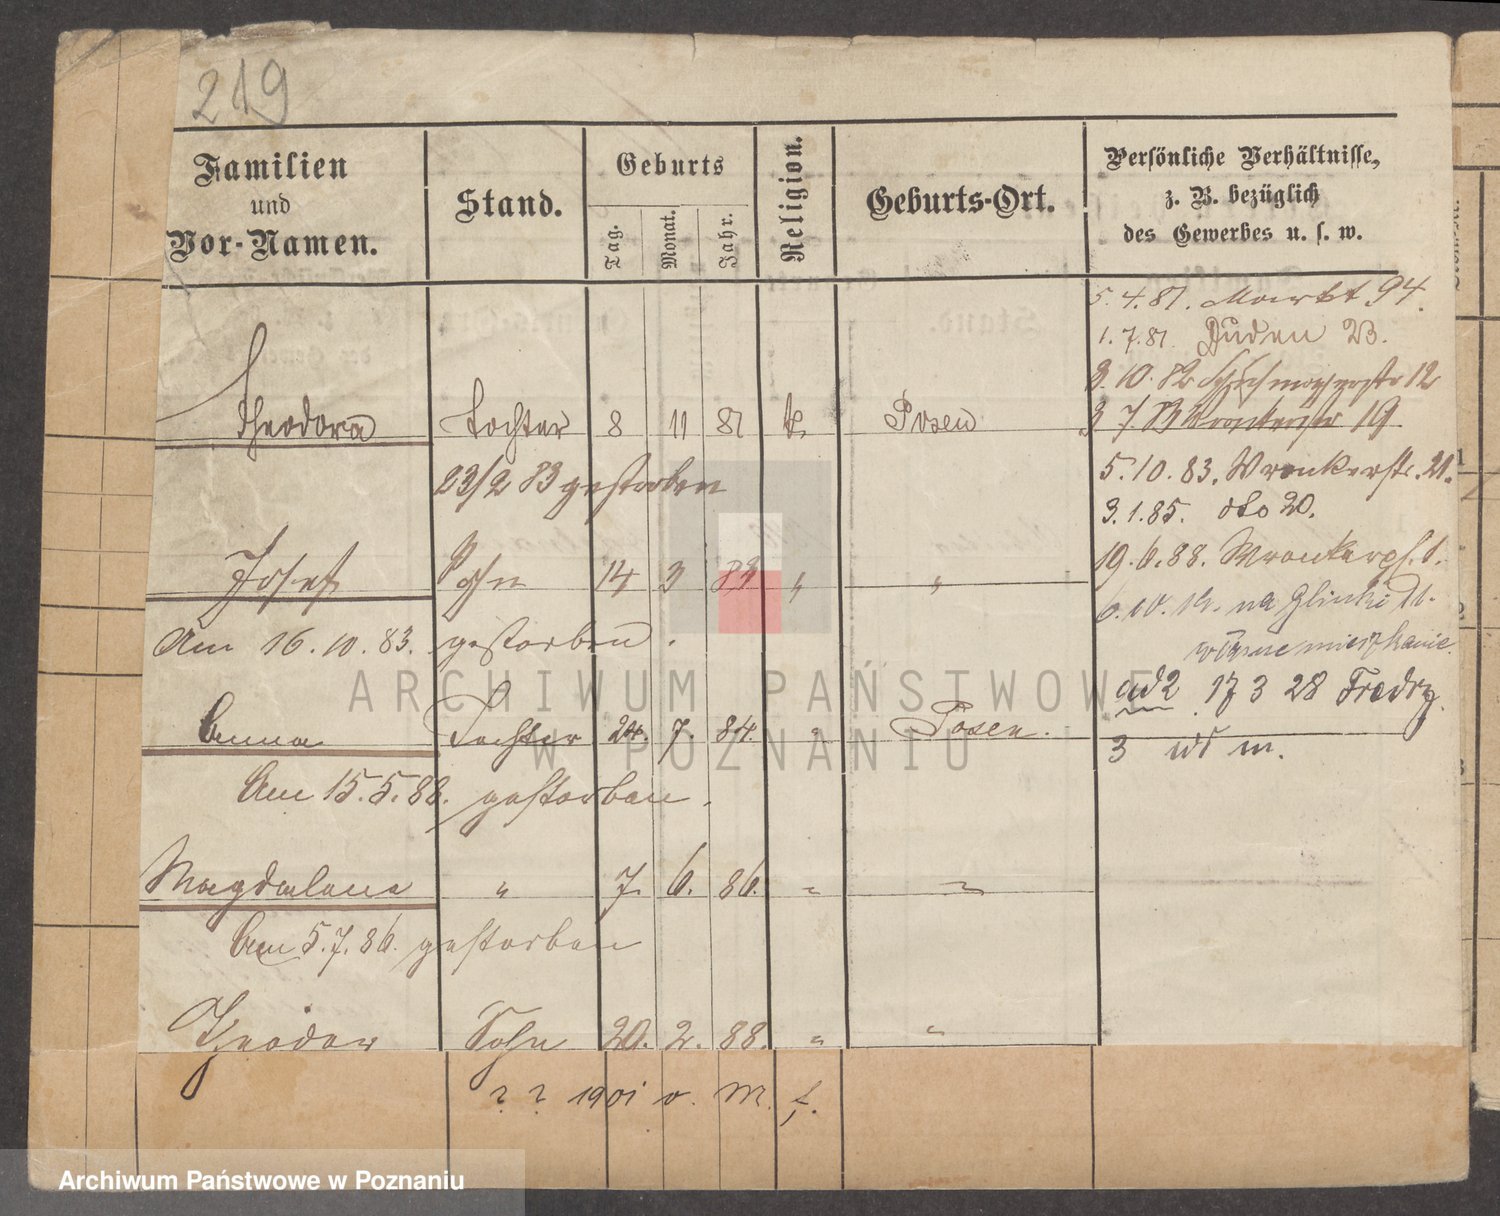 219
Familien
und
Vor-Namen.
Stand.
Geburts
Tag.
Monat.
Jahr.
Religion.
Geburts-Ort.
Persönliche Verhältnisse,
z. B. bezüglich
des Gewerbes u. s. w.
5.4.81. Markt 94.
1.7.81. Buden 23.
3.10.82 12
Theodora Tochter 8 11 81 k. Posen
3 7 83 Wronkerstr 19.
23/2 83 gestorben
5.10.83. Wronkerstr. 21.
3.1.85. dto 20.
Josef Sohn 14 3 83 " "
19.6.88. Wronkerpl. 1.
na Glinki 11.
Am 16.10.83. gestorben.
własne mieszkanie.
ad 2 17 3 28 Fredry
Anna Tochter 24. 7. 84. " Posen.
3 w m.
Am 15.5.88. gestorben.
Magdalena " 7. 6. 86. " "
Am 5.7.86. gestorben
Theodor Sohn 20. 2. 88. " "
? ? 1901 v. M. f.
ARCHIWUM PAŃSTWOWE
W POZNANIU
Archiwum Państwowe w Poznaniu